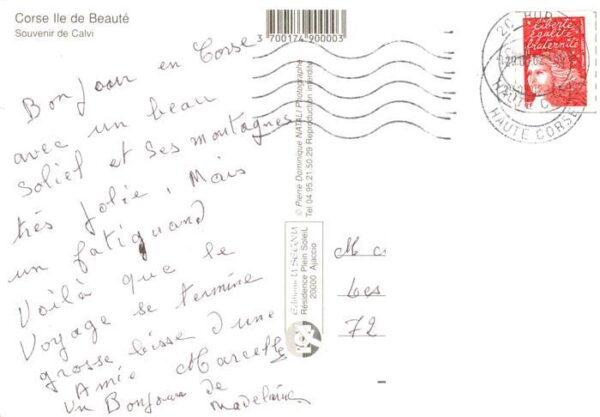 Corse Ile de Beauté
Souvenir de Calvi
3 700174 900003
Bonjour en Corse
avec un beau
Soliel et ses montagnes
très Jolie, Mais
un fatiguand
Voilà que le
Voyage se termine
grosse bisse d'une
Amie Marcelle
un Bonjour de
Madelaine
© Pierre Dominique NATALI Photographe
Tel 04.95.21.50.29 Reproduction interdite
Résidence Plein Soleil,
20000 Ajaccio
liberté
égalité
fraternité
HAUTE CORSE
M
Les
72